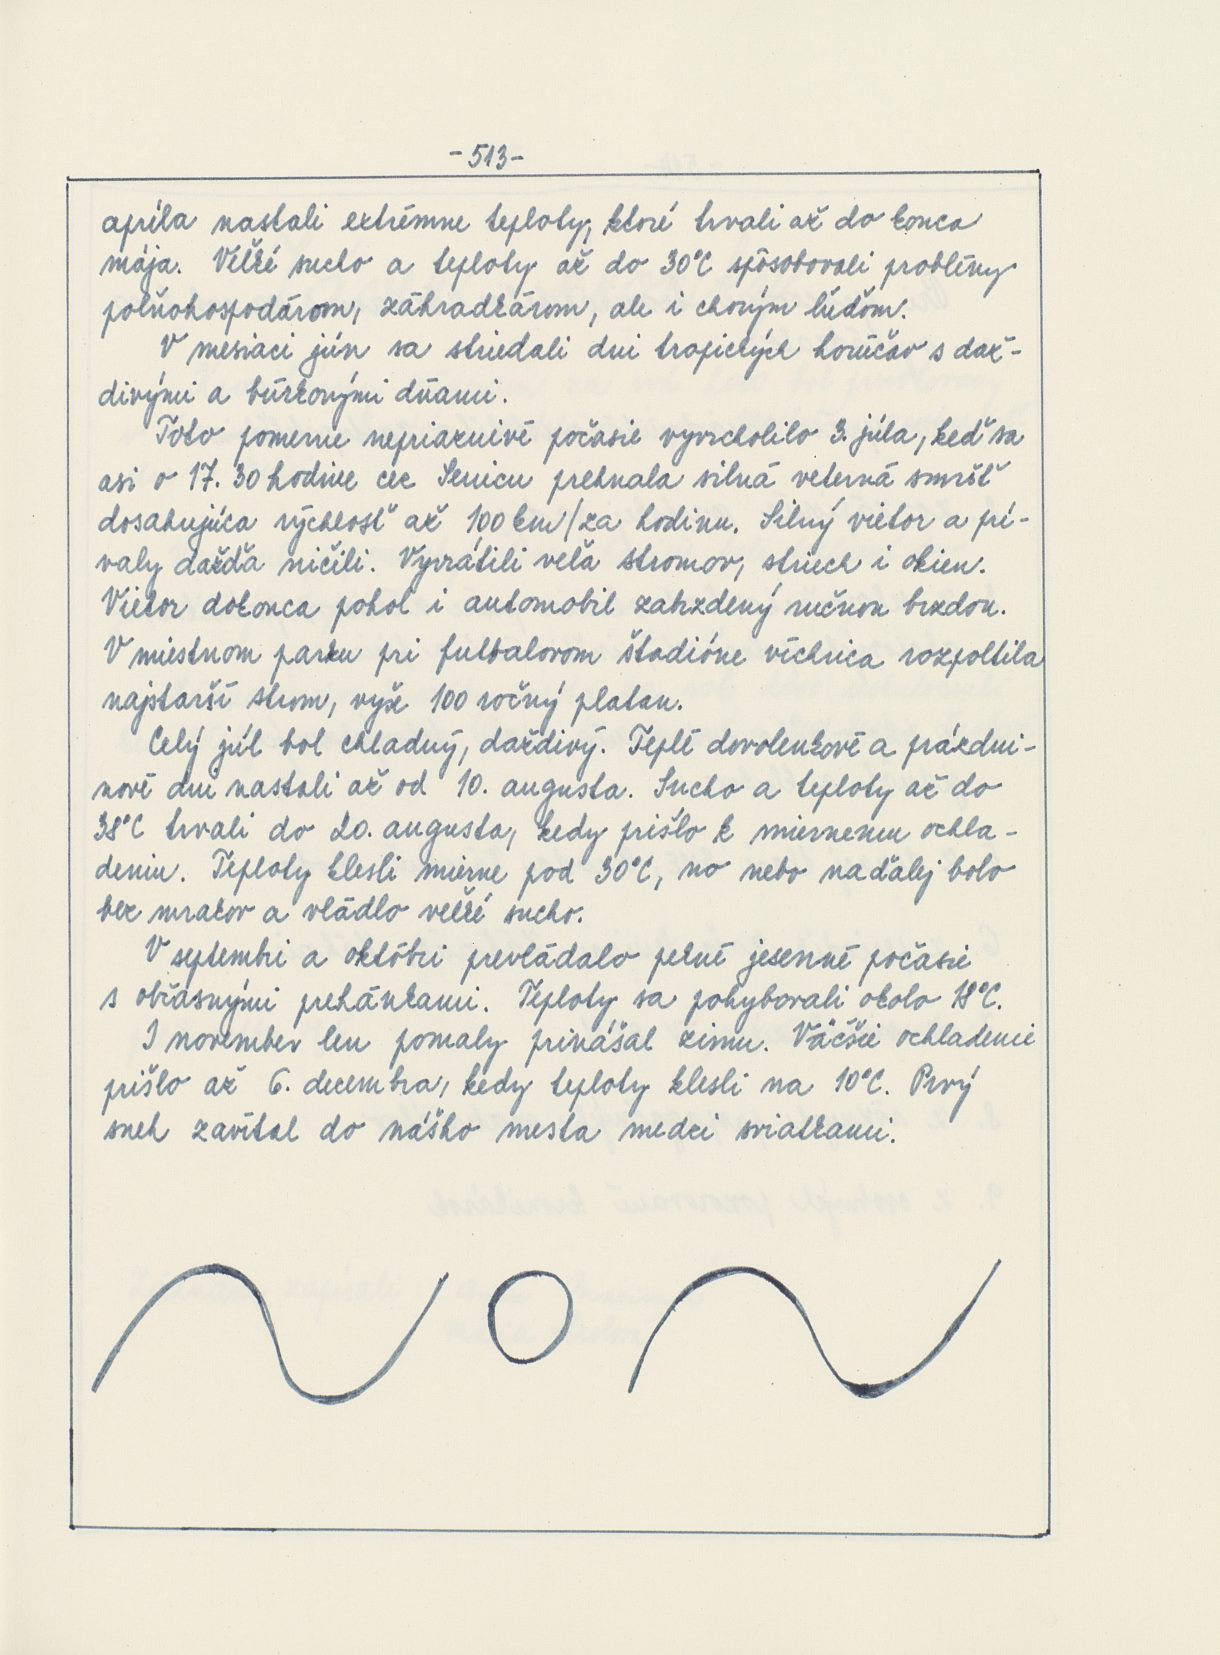 -513-
apríla nastali extrémne teploty, ktoré trvali až do konca
mája. Veľké sucho a teploty až do 30°C spôsobovali problémy
poľnohospodárom, záhradkárom, ale i chorým ľuďom.
V mesiaci jún sa striedali dni tropických horúčav s daž-
divými a búrkovými dňami.
Toto pomerne nepriaznivé počasie vyvrcholilo 3. júla, keď sa
asi o 17.30 hodine cez Senicu prehnala silná veterná smršť
dosahujúca rýchlosť až 100 km/za hodinu. Silný vietor a prí-
valy dažďa ničili. Vyvrátili veľa stromov, striech i okien.
Vietor dokonca pohol i automobil zabrzdený ručnou brzdou.
V miestnom parku pri futbalovom štadióne víchrica rozpoltila
najstarší strom, vyše 100 ročný platan.
Celý júl bol chladný, daždivý. Teplé dovolenkové a prázdni-
nové dni nastali až od 10. augusta. Sucho a teploty až do
38°C trvali do 20. augusta, kedy prišlo k miernemu ochla-
deniu. Teploty klesli mierne pod 30°C, no nebo naďalej bolo
bez mrakov a vládlo veľké sucho.
V septembri a októbri prevládalo pekné jesenné počasie
s občasnými prehánkami. Teploty sa pohybovali okolo 18°C.
I november len pomaly prinášal zimu. Väčšie ochladenie
prišlo až 6. decembra, kedy teploty klesli na 10°C. Prvý
sneh zavítal do nášho mesta medzi sviatkami.